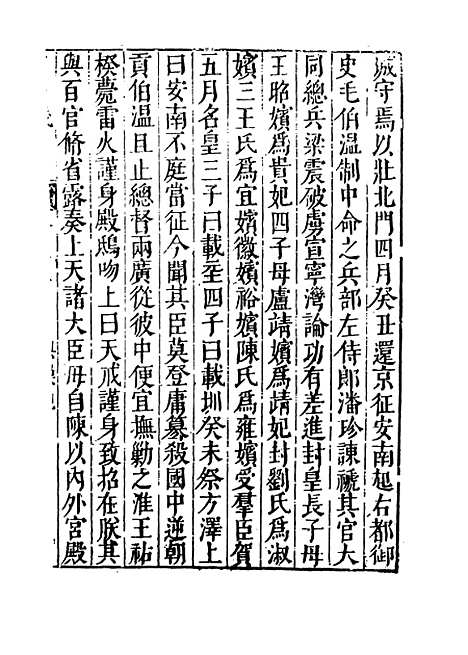 城守焉以壯北門四月癸丑還京征安南起右都御
史毛伯溫制中命之兵部左侍郎潘珍諫褫其官大
同總兵梁震破虜宣寧灣論功有差進封皇長子母
王昭嬪爲貴妃四子母盧靖嬪爲靖妃封劉氏爲淑
嬪三王氏爲宜嬪徽嬪裕嬪陳氏爲雍嬪受羣臣賀
五月名皇三子曰載至四子曰載圳癸未祭方澤上
曰安南不庭當征今聞其臣莫登庸篡殺國中逆朝
貢伯溫且止總督兩廣從彼中便宜撫勦之淮王祐
楑薨雷火謹身殿鴟吻上曰天戒謹身致拾在朕其
與百官脩省露奏上天諸大臣毋自陳以內外宮殿